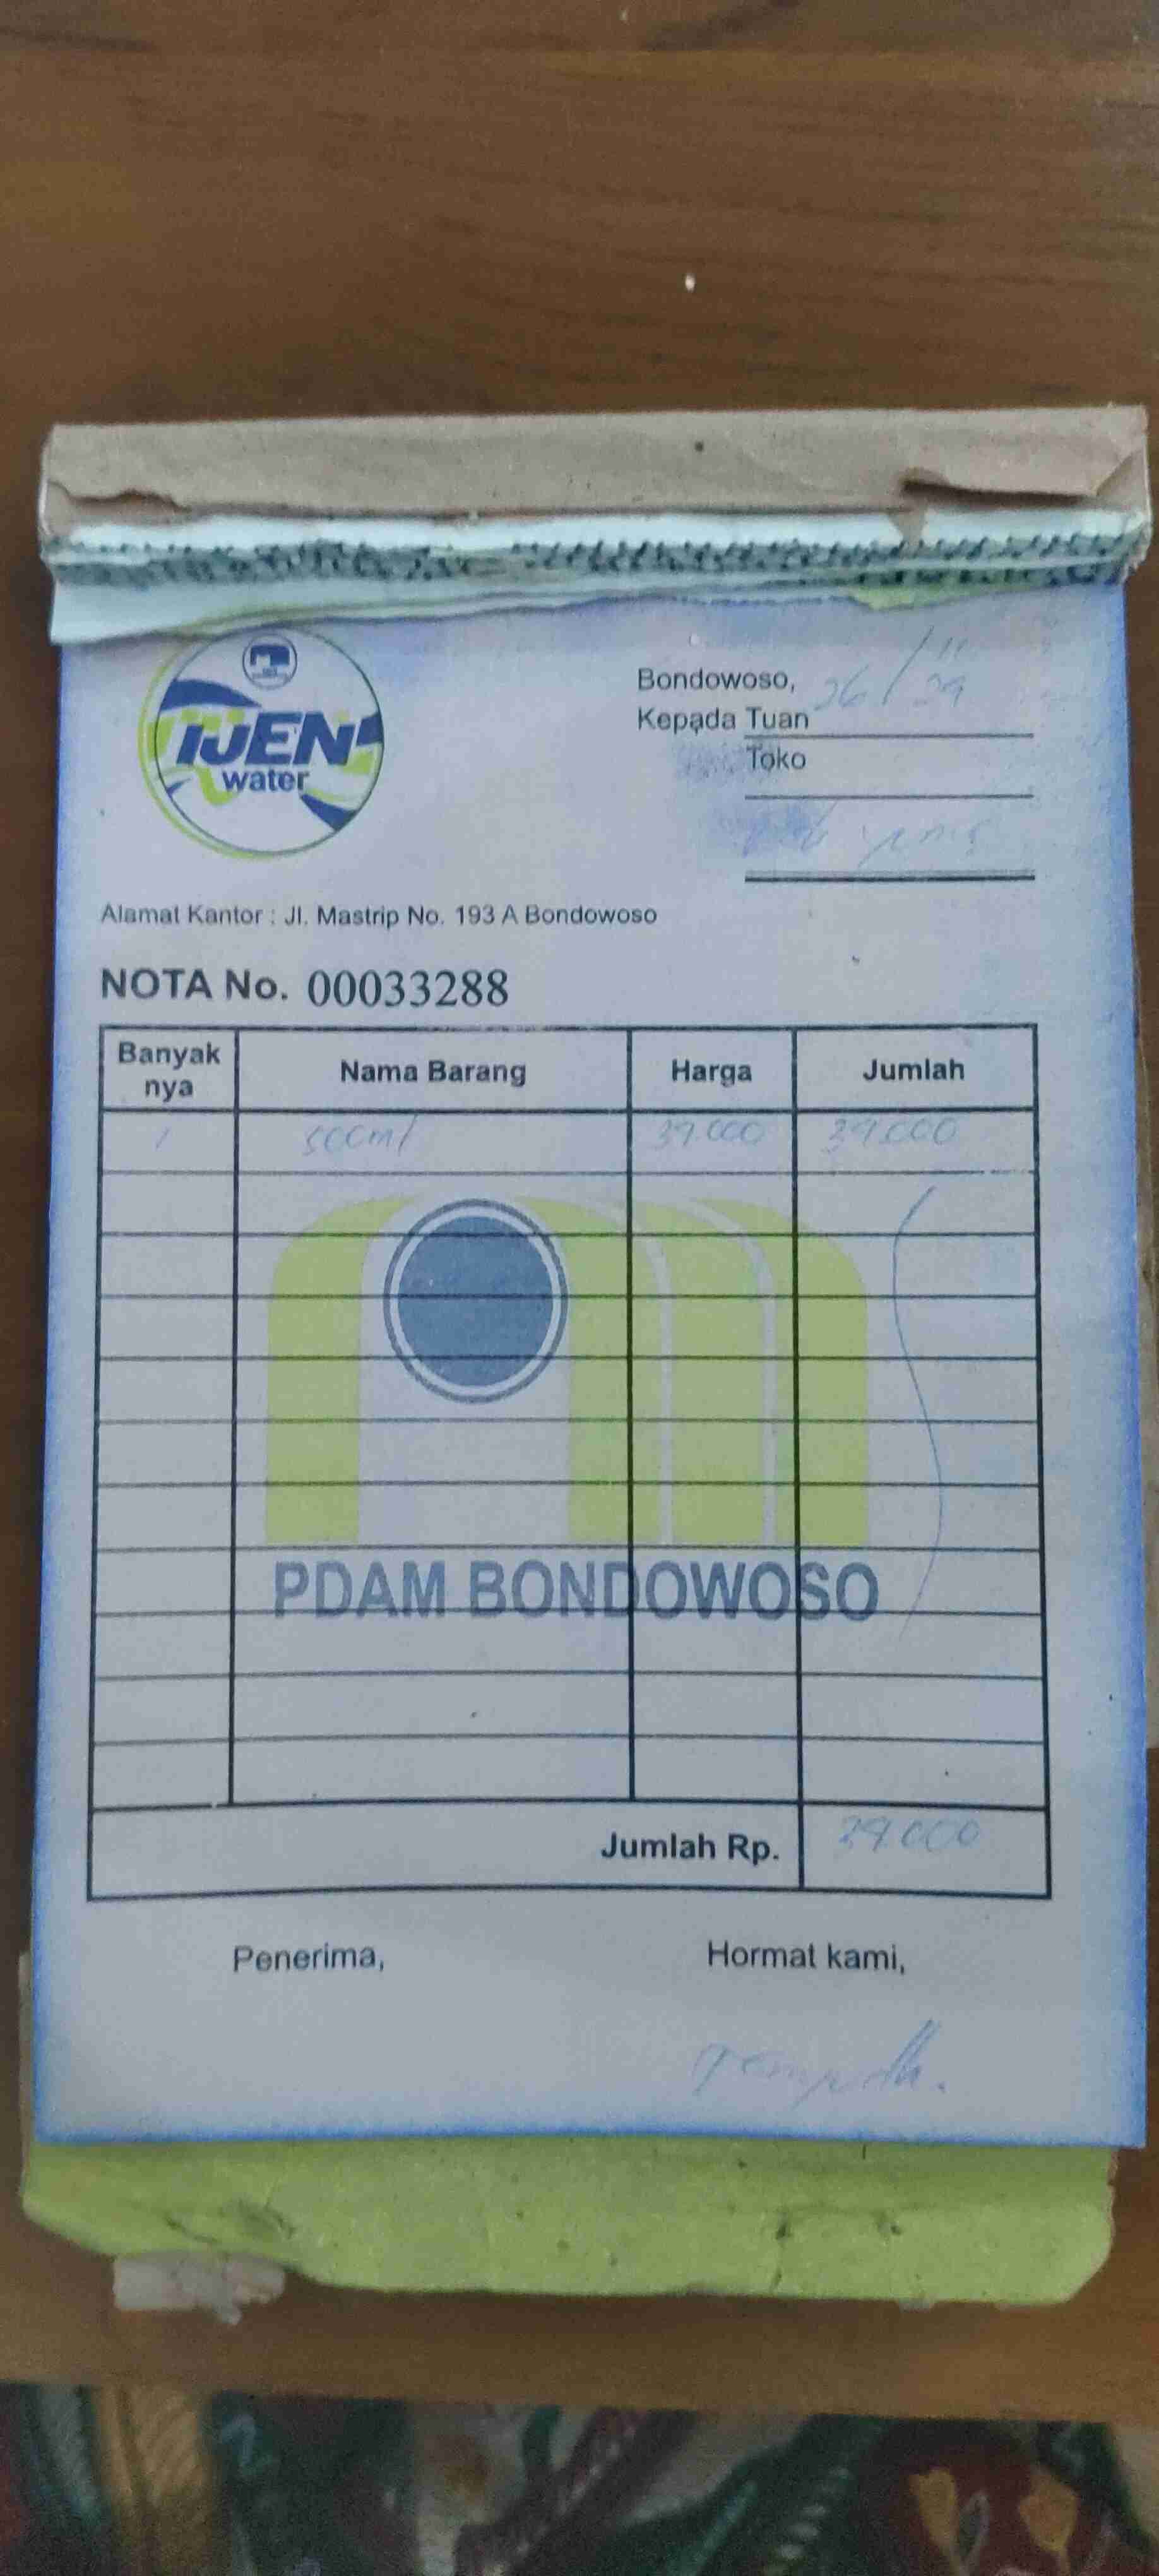 IJEN
water
Bondowoso, 26/11
Kepada Tuan
Toko
Alamat Kantor : Jl. Mastrip No. 193 A Bondowoso
NOTA No. 00033288
Banyak nya Nama Barang Harga Jumlah
1 500ml 39.000 39.000
PDAM BONDOWOSO
Jumlah Rp. 39.000
Penerima, Hormat kami,